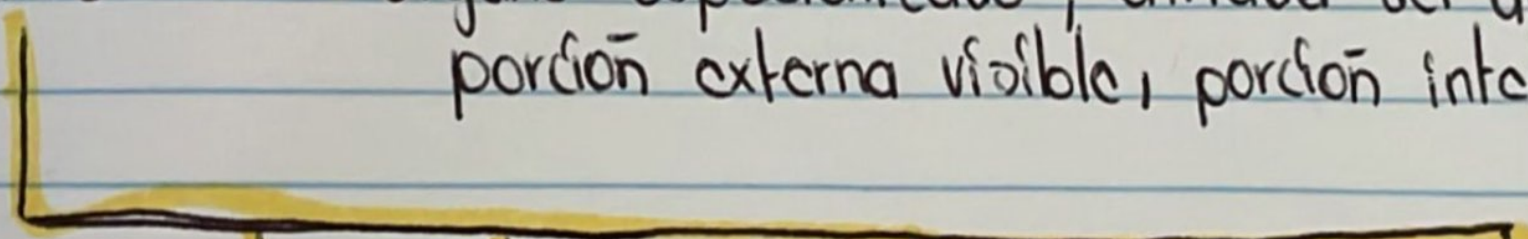 porción externa visible, porción inte